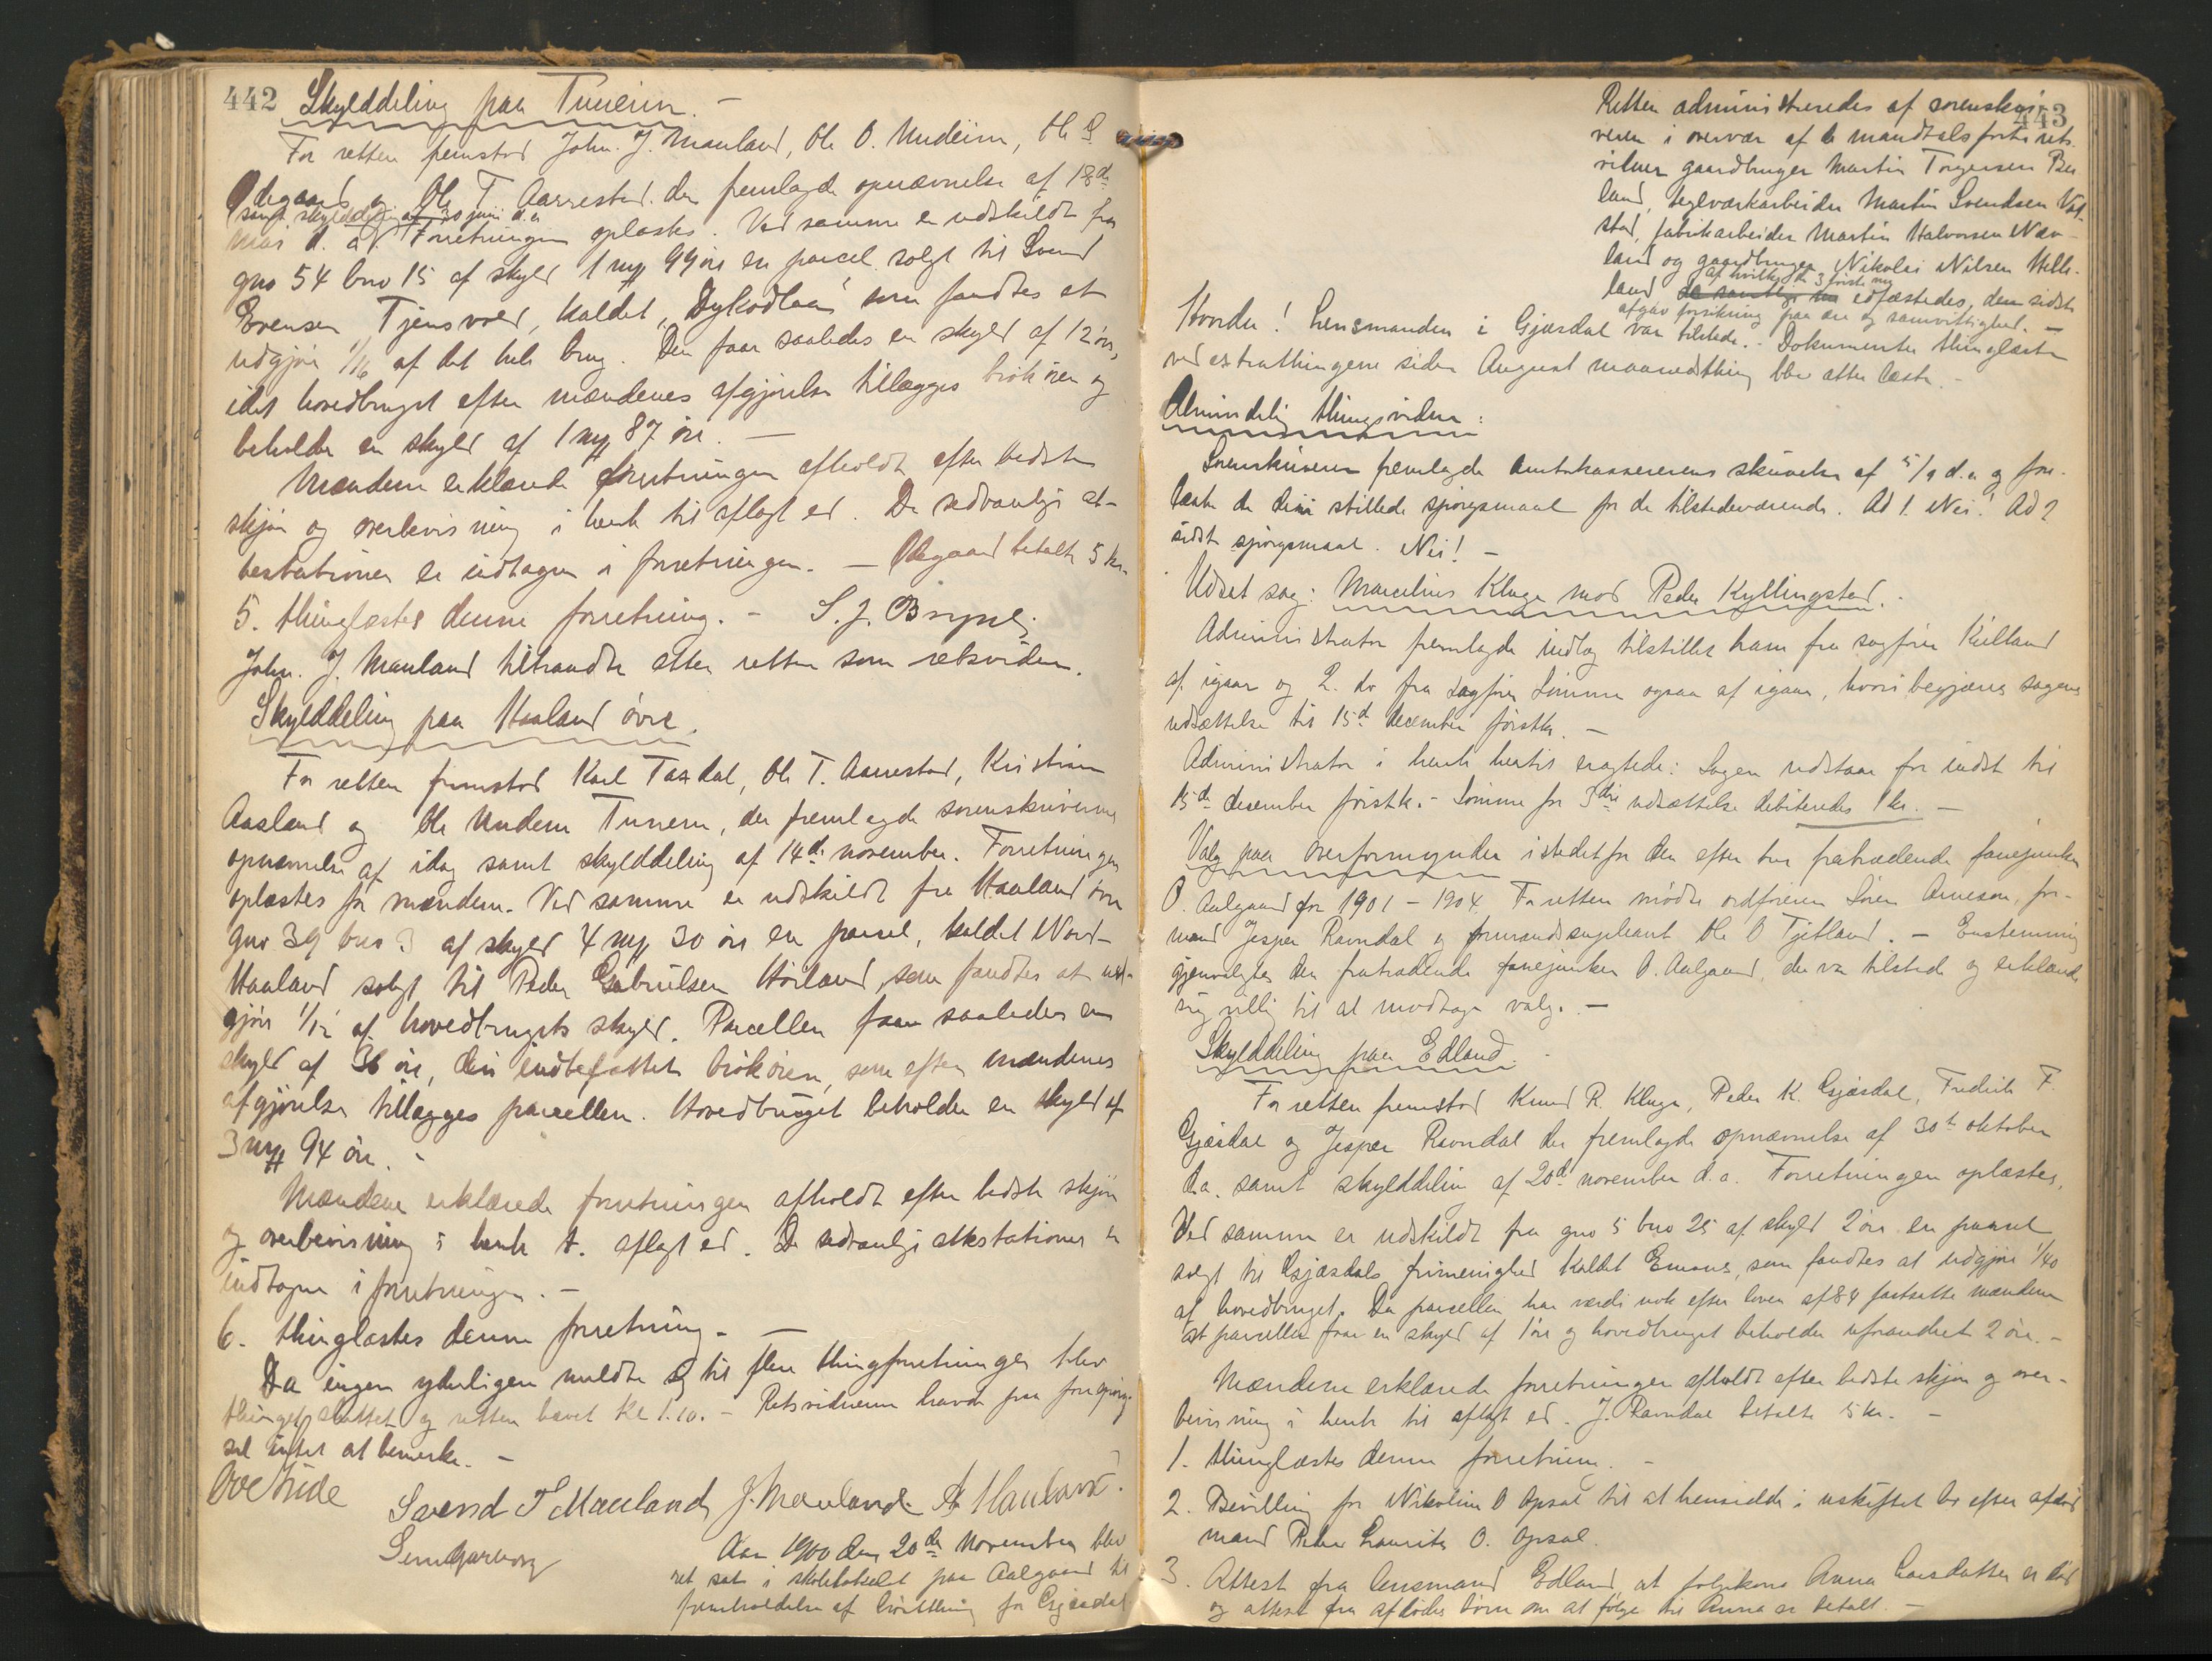 442 Skylddeling paa Tuneim. —
For retten fremstod John. J. Mauland, Ole O. Undeim, Ole O
Ødegaard og Ole T. Aarrestad. der fremlagde opnævnelse af 18de
samt skylddeling af 30 juni d.a
mai d. a. Forretningen oplæstes. Ved samme er udskildt fra
gno 54 bno 15 af skyld 1 mk 99 øre en parcel solgt til Svend
Evensen Tjensvold, kaldet „Dykodlaa" som fandtes at
udgjøre 1/16 af det hele brug. Den faar saaledes en skyld af 12 øre,
idet hovedbruget efter mændenes afgjørelse tillægges brøkøren og
beholder en skyld af 1 mk 87 øre. —
Mændene erklærede forretningen afholdt efter bedste
skjøn og overbevisning i henh til aflagt ed. De sedvanlige at-
testationer er indtagen i forretningen. — Ødegaard betalte 5 kr.
5. thinglæstes denne forretning. –
John. J. Mauland tiltraadte atter retten som retsvidne.
Skylddeling paa Haaland øvre.
For retten fremstod Karl Taxdal, Ole T. Aarrestad, Kristian
Aasland og Ole Undem Tunem, der fremlagde sorenskriverens
opnævnelse af idag samt skylddeling af 14de november. Forretningen
oplæstes for mændene. Ved samme er udskildt fra Haaland øvre
gno 39 bno 3 af skyld 4 mk 30 øre en parcel, kaldet Nord-
Haaland solgt til Peder Gabrielsen Høiland, som fandtes at ud-
gjøre 1/12 af hovedbrugets skyld. Parcellen faar saaledes en
skyld af 36 øre, deri indbefattet brøkøren, som efter mændenes
afgjørelse tillægges parcellen. Hovedbruget beholder en skyld af
3 mk 94 øre. –
Mændene erklærede forretningen afholdt efter bedste skjøn
og overbevisning i henh t. aflagt ed. De sedvanlige attestationer er
indtagne i forretningen. –
6. thinglæstes denne forretning. —
Da ingen yderligere meldte sig til flere thingforretninger blev
thinget sluttet og retten hævet kl 1.10. – Retsvidnerne havde paa forespørg-
sel intet at bemerke. –
Svend T Mauland J. Mauland A Haaland.
Aar 1900 den 20de november blev
ret sat i skolelokalet paa Aalgaard til
fremholdelse af høstthing for Gjæsdal
443
Retten administreredes af sorenskri-
veren i overvær af de mandtalsførte rets-
vidner gaardbruger Martin Torgersen Bu
land, teglværkarbeider Martin Svendsen Val-
stad, fabrikarbeider Martin Halvorsen Næv-
land og gaardbruger Nikolai Nilsen Helle-
af hvilke de 3 første nu
land edfæstedes, den sidste
afgav forsikring paa ære og samvittighed. —
Lensmanden i Gjæsdal var tilstede. – Dokumenter thinglæste
ved extrathingene siden August maanedsthing blev atter læste. –
Almindelig thingsvidne:
Sorenskriveren fremlagde amtskassererens skrivelse af 5/9 d.a og fore-
læste de deri stillede spørgsmaal for de tilstedeværende. Ad 1. Nei! Ad 2
sidste spørgsmaal. Nei! –
Udsat sag: Marcelius Kluge mod Peder Kyllingstad. –
Administrator fremlagde indlæg tilstillet ham fra sagfører Kielland
af igaar og 2. do fra sagfører Sømme ogsaa af igaar, hvori begjæres sagens
udsættelse til 15de december førstk. —
Administrator i henh hertil eragtede: Sagen udstaar for indst til
15de december førstk. – Sømme for 3die udsættelse debiteredes 1 kr. —
Valg paa overformynder istedetfor den efter tur fratrædende fanejunker
O. Aalgaard for 1901 – 1904. For retten mødte ordføreren Søren Arneson, for-
mand Jesper Ravndal og formandssupleant Ole O Tjetland. – Enstemmig
gjenvalgtes den fratrædende fanejunker O. Aalgaard, der var tilstede og erklærede
sig villig til at modtage valg. —
Skylddeling paa Edland. –
For retten fremstod Knud R. Kluge, Peder K. Gjæsdal, Fredrik F.
Gjæsdal og Jesper Ravndal der fremlagde opnævnelse af 30te oktober
d.a. samt skylddeling af 20de november d.a. Forretningen oplæstes,
Ved samme er udskildt fra gno 5 bno 25 af skyld 2 øre en parcel
solgt til Gjæsdals frimenighed kaldet Emaus, som fandtes at udgjøre 1/40
af hovedbruget. Da parcellen har værdi nok efter loven af 84 fastsatte mændene
at parcellen faar en skyld af 1 øre og hovedbruget beholder uforandret 2 øre. –
Mændene erklærede forretningen afholdt efter bedste skjøn og over-
bevisning i henh til aflagt ed. J. Ravndal betalte 5 kr. –
1. thinglæstes denne forretning. –
2. Bevilling for Nikoline O Opsal til at hensidde i uskiftet bo efter afdød
mand Peder Laurits O. Opsal.
3. Attest fra lensmand Edland at folgekone Anna Larsdatter er død
og attest fra afdødes børn om at følge til Anna er betalt. –